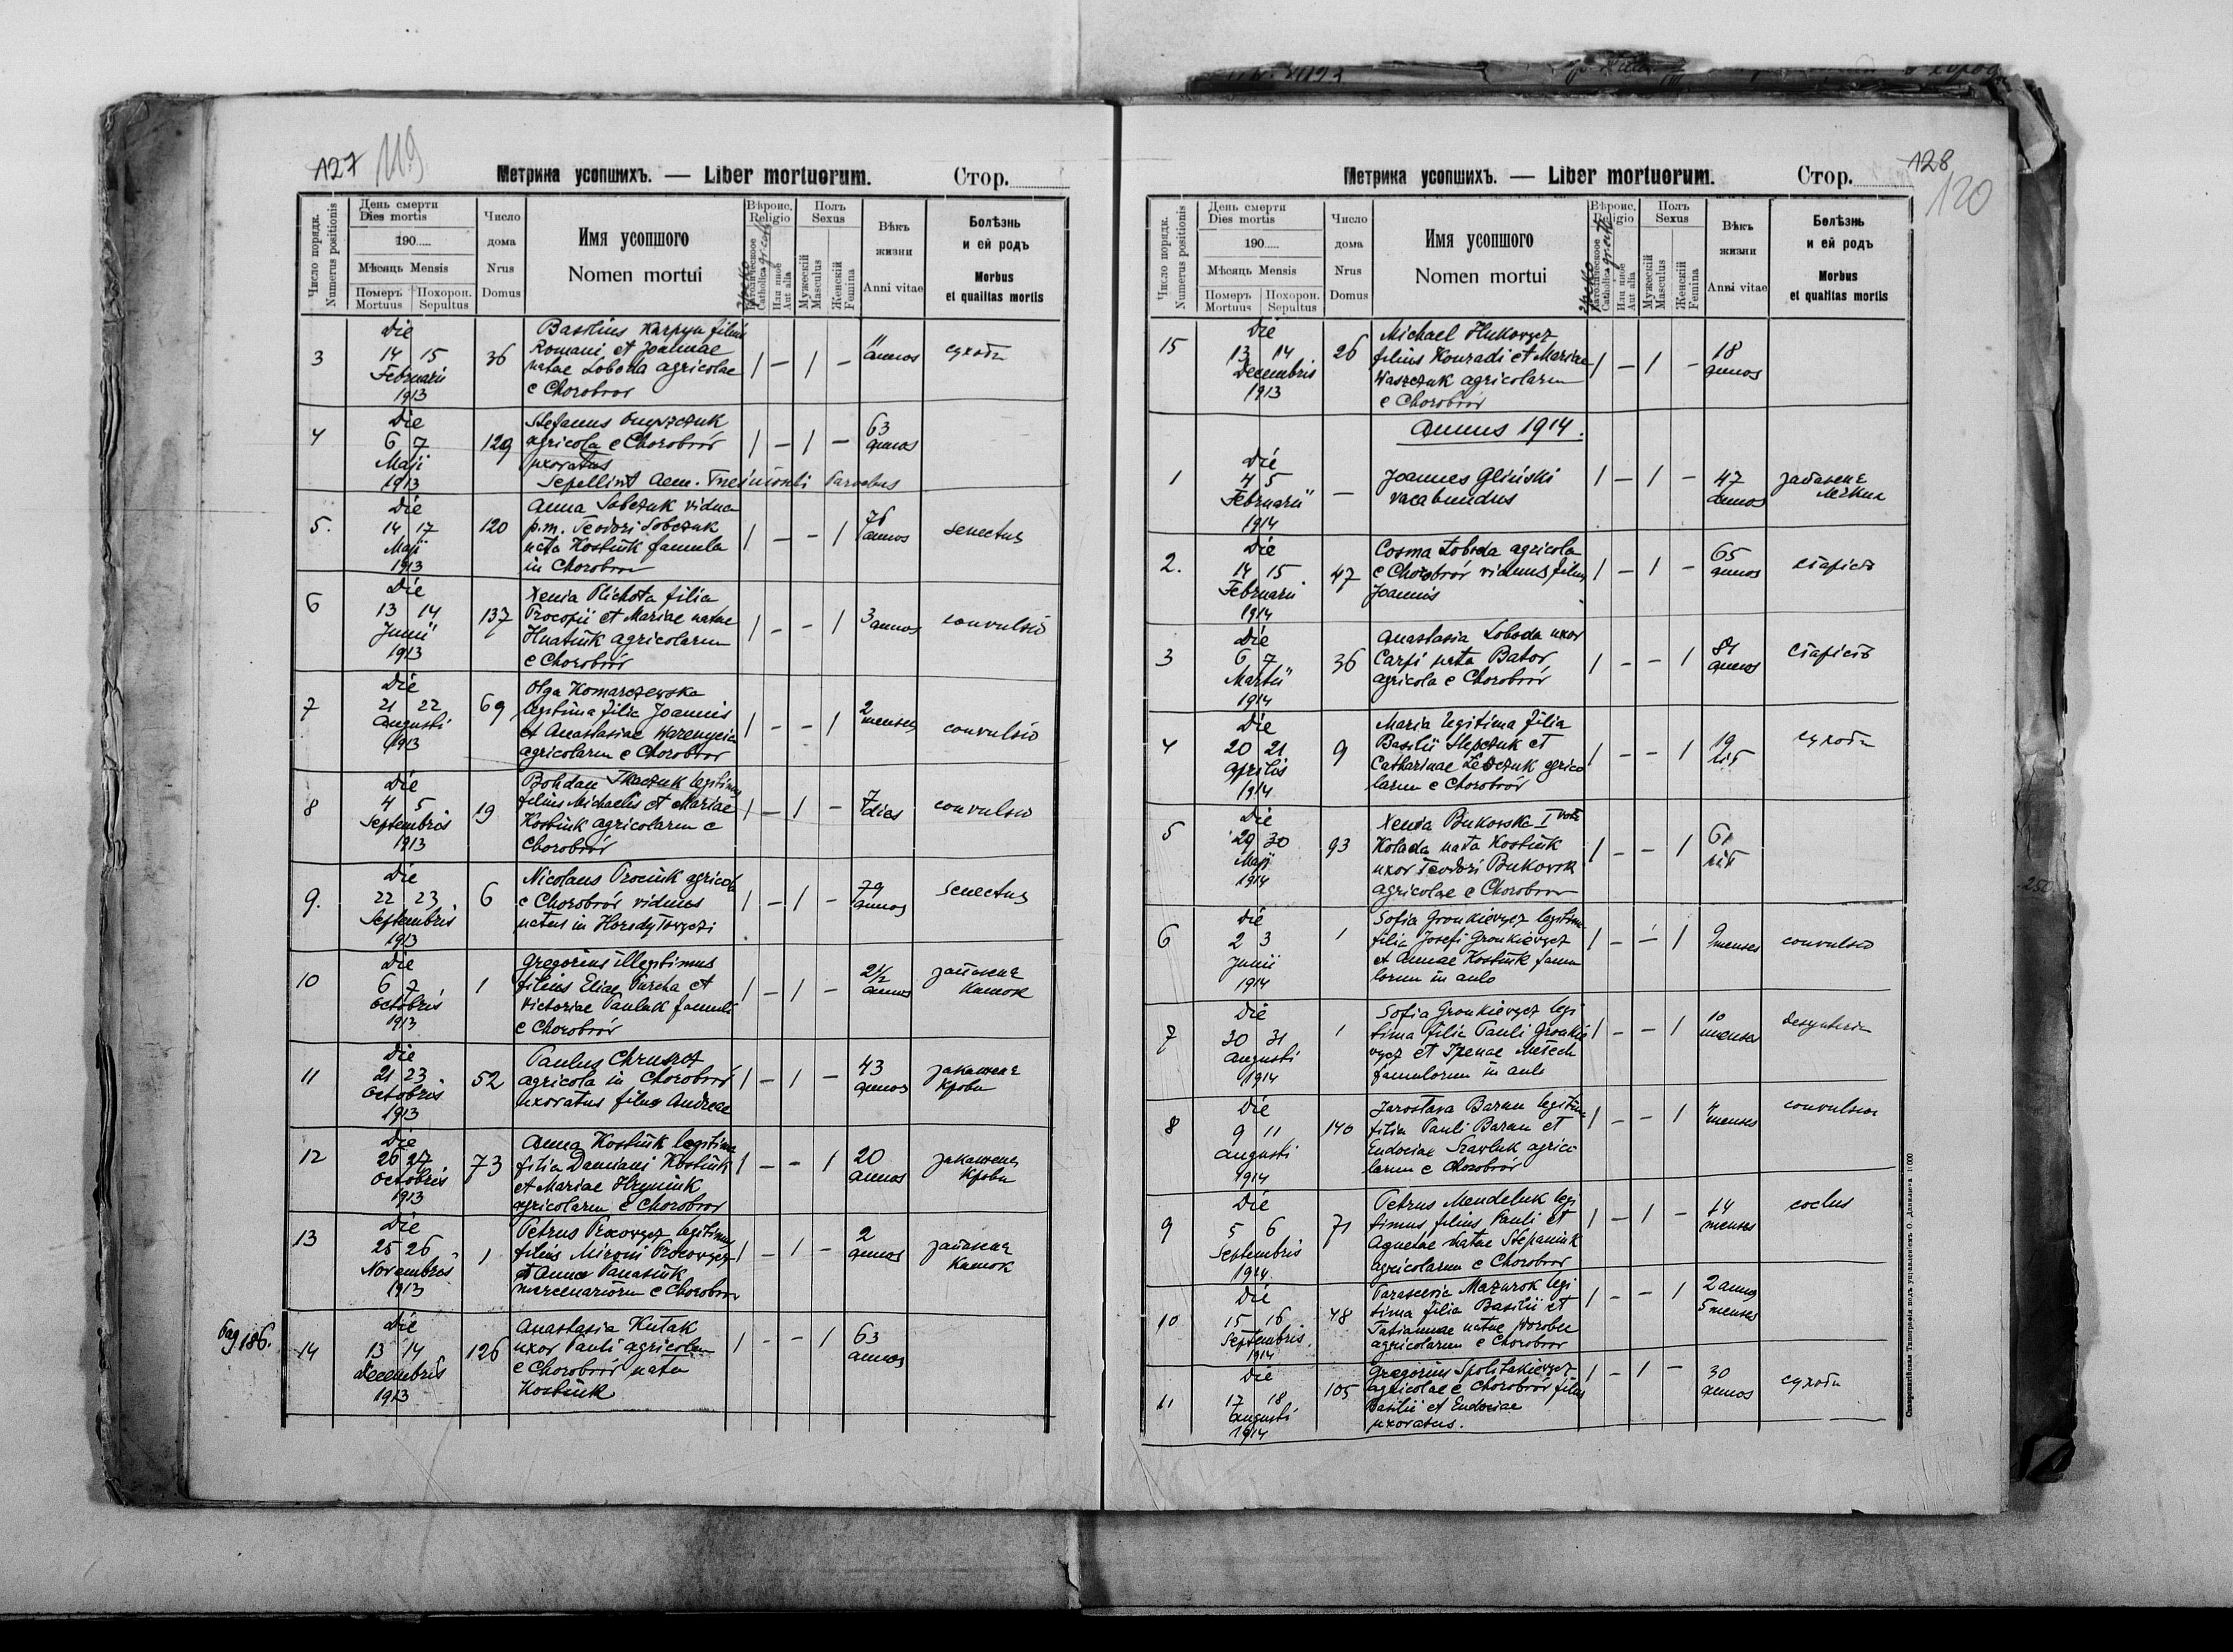 127 119
Метрика усопшихъ. — Liber mortuorum. Стор.
Число порядк. Numerus positionis
День смерти Dies mortis
190
Мѣсяць Mensis
Померъ Mortuus
Похорон. Sepultus
Число дома Nrus Domus
Имя усопшого
Nomen mortui
Вѣроис. Religio
греко Католическое Catholica graeca
Или иное Aut alia
Полъ Sexus
Мужескій Masculus
Женскій Femina
Вѣкъ жизни Anni vitae
Болѣзнь и ей родъ
Morbus et qualitas mortis
3 Die 14 15 Februarii 1913 36
Basilius Karpyn filius
Romani et Joannae
natae Loboda agricolae
e Chorobrov
1 — 1 — 11 annos сухоты
4 Die 6 7 Maji 1913 129
Stefanus Onyszczuk
agricola e Chorobrów
uxoratus
1 — 1 — 63 annos
Sepellivit Aem. Parochus
5. Die 14 17 Maji 1913 120
Anna Sobczuk vidua
p.m. Teodori Sobczuk
nata Kostiuk famula
in Chorobrow
1 — — 1 76 annos senectus
6 Die 13 14 Junii 1913 137
Xenia Plichota filia
Procopii et Mariae natae
Hnatiuk agricolarum
e Chorobrów
1 — — 1 3 annos convulsio
7 Die 21 22 Augusti 1913 69
Olga Komarczewska
legitima filia Joannis
et Anastasiae
agricolarum e Chorobrov
1 — — 1 2 menses convulsio
8 Die 4 5 Septembris 1913 19
Bohdan Tkaczuk legitimus
filius Michaelis et Mariae
Kostiuk agricolarum e
Chorobrów
1 — 1 — 7 dies convulsio
9. Die 22 23 Septembris 1913 6
Nicolaus Prociuk agricola
e Chorobrów viduus
natus in Horodytowyczi
1 — 1 — 79 annos senectus
10 Die 6 7 Octobris 1913 1
Gregorius illegitimus
filius Eliae Parcha et
Victoriae Pauluk famuli
e Chorobrów
1 — 1 — 2 1/2 annos запаленє кишок
11 Die 21 23 Octobris 1913 52
Paulus Chruszcz
agricola in Chorobrów
uxoratus filius Andreae
1 — 1 — 43 annos закаженє крови
12 Die 26 27 Octobris 1913 73
Anna Kostiuk legitima
filia Damiani Kostiuk
et Mariae Hryniuk
agricolarum e Chorobrov
1 — — 1 20 annos закаженє крови
13 Die 25 26 Novembris 1913 1
Petrus Procovycz legitimus
filius Mironi Procovycz
et Anna Panasiuk
mercenariorum e Chorobrow
1 — 1 — 2 annos запаленє кишок
Pag 186. 14 Die 13 14 Decembris 1913 126
Anastasia Kutak
uxor Pauli agricolae
e Chorobrów nata
Kostiuk
1 — — 1 63 annos
128 120
Метрика усопшихъ. — Liber mortuorum. Стор.
Число порядк. Numerus positionis
День смерти Dies mortis
190
Мѣсяць Mensis
Померъ Mortuus
Похорон. Sepultus
Число дома Nrus Domus
Имя усопшого
Nomen mortui
Вѣроис. Religio
греко Католическое Catholica graeca
Или иное Aut alia
Полъ Sexus
Мужескій Masculus
Женскій Femina
Вѣкъ жизни Anni vitae
Болѣзнь и ей родъ
Morbus et qualitas mortis
15 Die 13 14 Decembris 1913 26
Michael Hukovycz
filius Konradi et Mariae
Waszczuk agricolarum
e Chorobrów
1 — 1 — 18 annos
Annus 1914.
1 Die 4 5 Februarii 1914 —
Joannes Gliński
vacabundus
1 — 1 — 47 annos
2. Die 14 15 Februarii 1914 47
Cosma Loboda agricola
e Chorobrów viduus filius
Joannis
1 — 1 — 65 annos старість
3 Die 6 7 Martii 1914 36
Anastasia Loboda uxor
Carpi nata Bator
agricola e Chorobrów
1 — — 1 84 annos старість
4 Die 20 21 Aprilis 1914 9
Maria legitima filia
Basilii Slepczuk et
Catharinae Leszczuk agrico
larum e Chorobrów
1 — — 1 19 літ сухоты
5 Die 29 30 Maji 1914 93
Xenia Bukovska I voto
Kolada nata Kostiuk
uxor Teodori Bukovsk
agricolae e Chorobrow
1 — — 1 61 літ
6 Die 2 3 Junii 1914 1
Sofia Gronkievycz legitima
filia Josefi Gronkievycz
et Annae Kostiuk famu
lorum in aula
1 — — 1 9 menses convulsio
7 Die 30 31 Augusti 1914 1
Sofia Gronkievycz legi
tima filia Pauli Gronkie
vycz et Irenae
famulorum in aula
1 — — 1 10 menses desynteria
8 Die 9 11 Augusti 1914 140
Jaroslava Baran legitima
filia Pauli Baran et
Eudociae Szavluk agrico
larum e Chorobrów
1 — — 1 menses convulsion
9 Die 5 6 Septembris 1914. 71
Petrus Mendeluk legi
timus filius Pauli et
Agnetae natae Stepaniuk
agricolarum e Chorobrov
1 — 1 — 14 menses coclus
10 Die 15 16 Septembris 1914 48
Parascevia Mazurok legi
tima filia Basilii et
Tatiannae natae Worobec
agricolarum e Chorobrov
1 — — 1 2 annos 5 menses
11 Die 17 18 Augusti 1914 105
Gregorius Spolitakievycz
agricolae e Chorobrów filius
Basilii et Eudociae
uxoratus.
1 — 1 — 30 annos сухоты